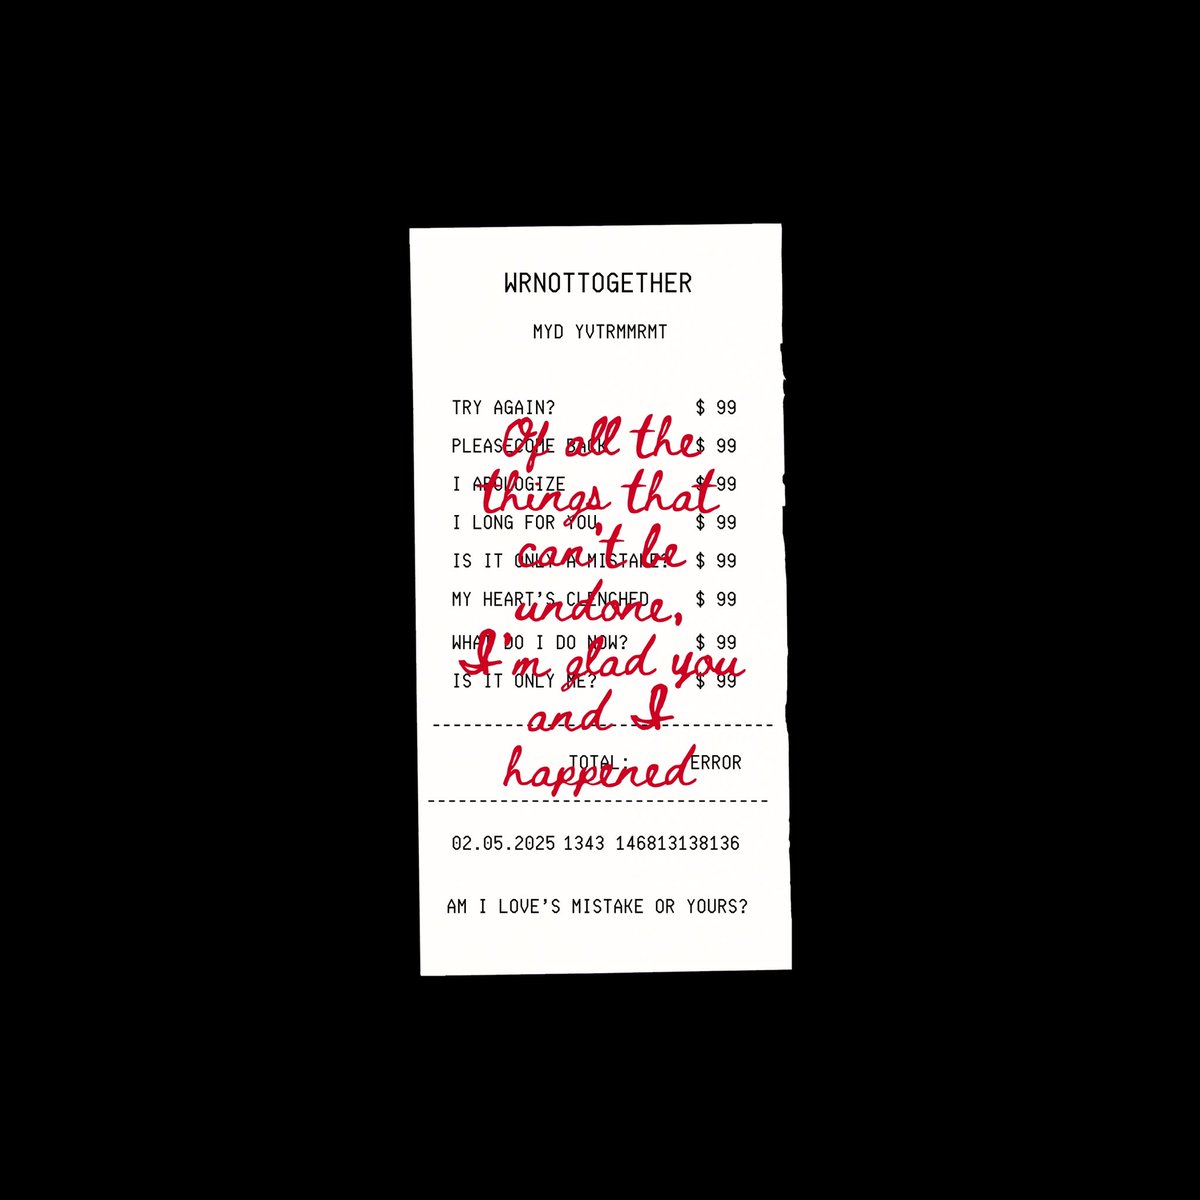 WRNOTTOGETHER
MYD YVTRMMRMT
TRY AGAIN? $ 99
PLEASECOME BACK $ 99
I APOLOGIZE $ 99
I LONG FOR YOU $ 99
IS IT ONLY A MISTAKE? $ 99
MY HEART'S CLENCHED $ 99
WHAT DO I DO NOW? $ 99
IS IT ONLY ME? $ 99
TOTAL: ERROR
02.05.2025 1343 146813138136
AM I LOVE'S MISTAKE OR YOURS?
Of all the
things that
can't be
undone,
I'm glad you
and I
happened